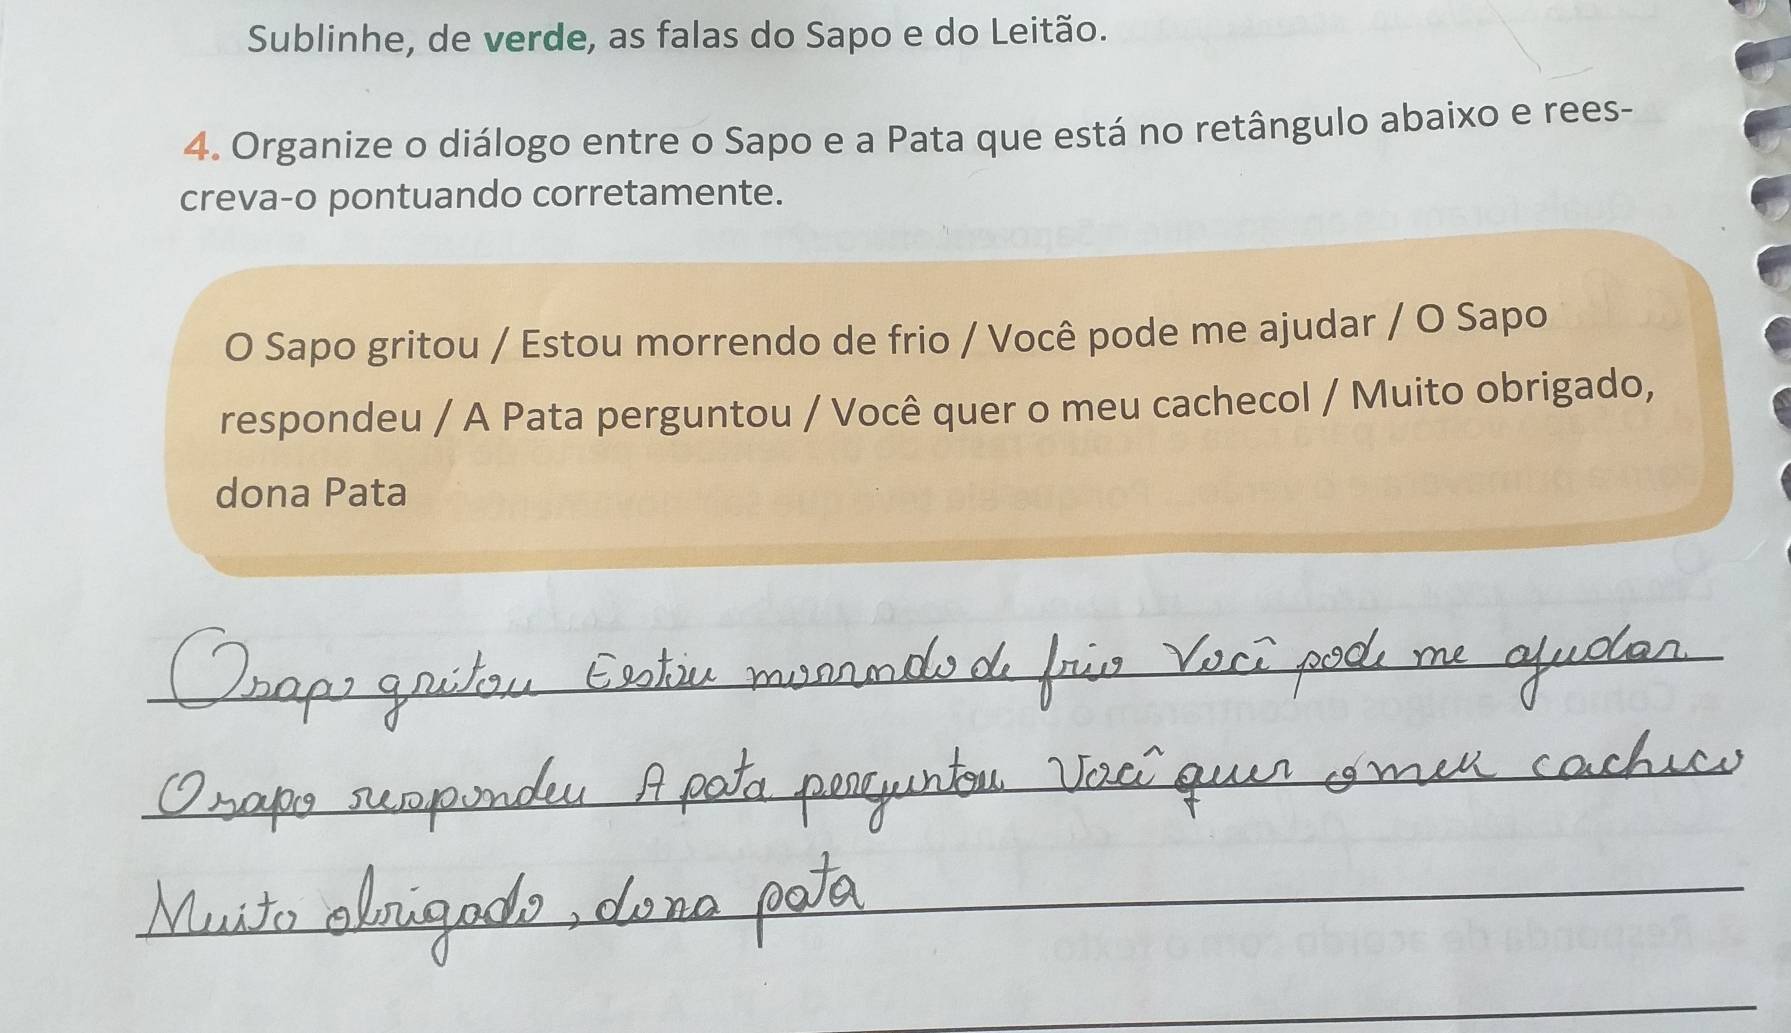 Sublinhe, de verde, as falas do Sapo e do Leitão.
4. Organize o diálogo entre o Sapo e a Pata que está no retângulo abaixo e rees-
creva-o pontuando corretamente.
O Sapo gritou / Estou morrendo de frio / Você pode me ajudar / O Sapo
respondeu / A Pata perguntou / Você quer o meu cachecol / Muito obrigado,
dona Pata
O sapo gritou Estou morrndo de frio Você pode me ajudar
O sapo respondeu A pata perguntou Você quer o meu cacheco
Muito obrigado, dona pata